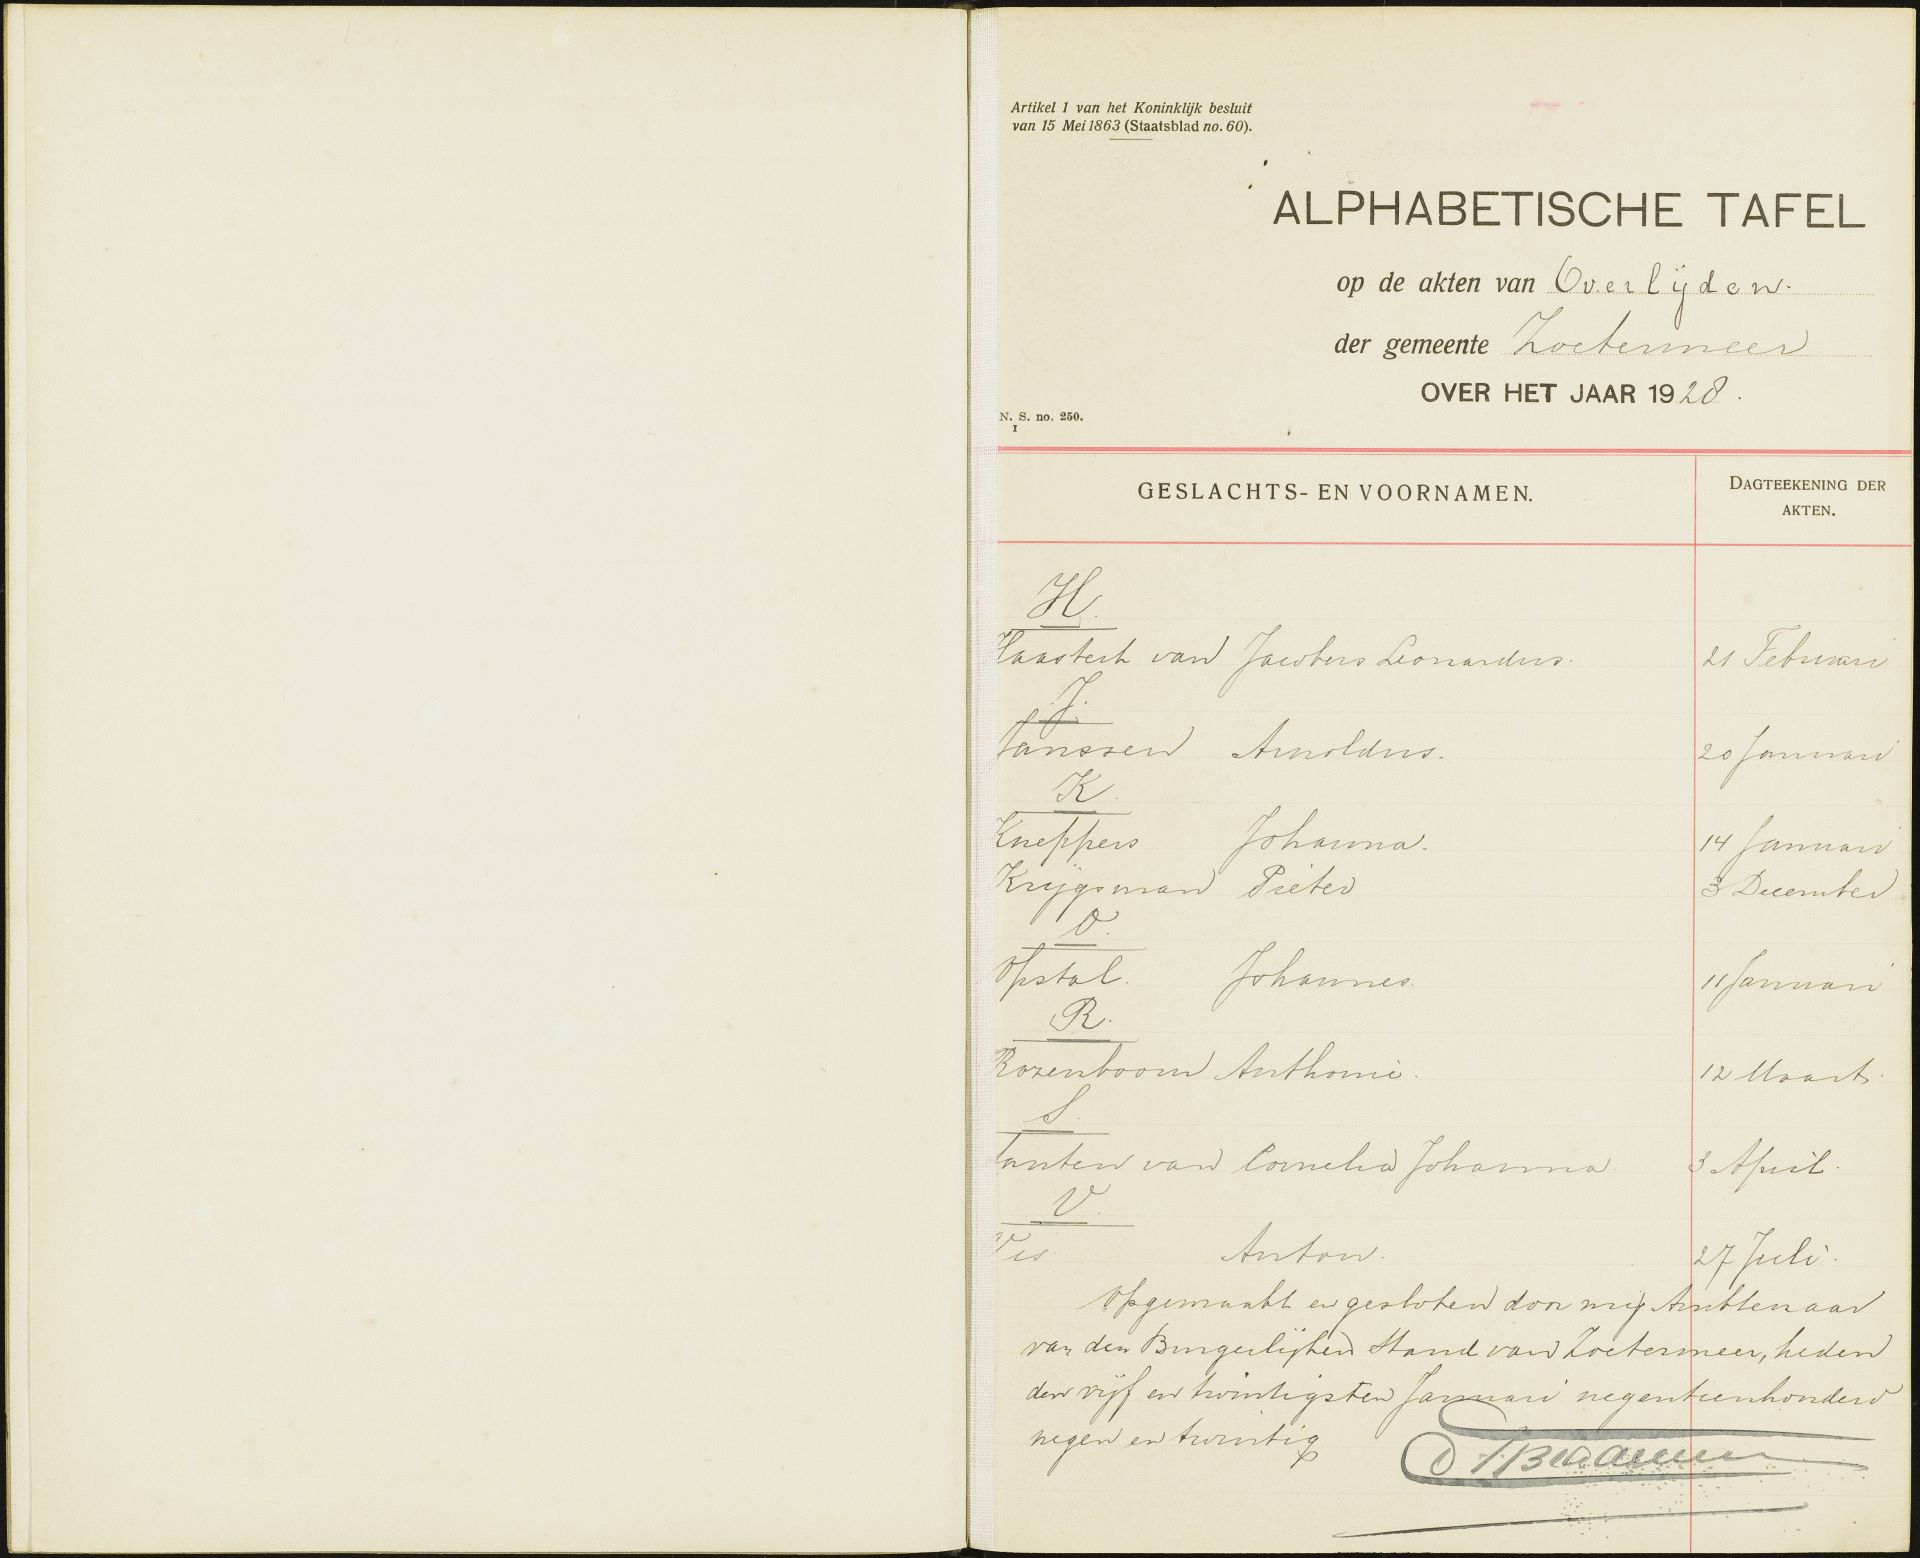 Artikel 1 van het Koninklijk besluit
van 15 Mei 1863 (Staatsblad no. 60).
ALPHABETISCHE TAFEL
op de akten van Overlijden.
der gemeente Zoetermeer
OVER HET JAAR 1928.
N. S. no. 250.
I
GESLACHTS- EN VOORNAMEN.
DAGTEEKENING DER
AKTEN.
H.
van Jacobus Leonardus. 21 Februari
J.
Janssen Arnoldus. 20 Januari
K.
Kneppers Johanna. 14 Januari
Krijgsman Pieter 3 December
O.
Opstal. Johannes. 11 Januari
R.
Rozenboom Anthonie. 12 Maart.
S.
Santen van Cornelia Johanna. 3 April.
V.
Vis Anton. 27 Juli.
Opgemaakt en gesloten door mij Ambtenaar
van den Burgerlijken Stand van Zoetermeer, heden
den vijf en twintigsten Januari negentienhonderd
negen en twintig